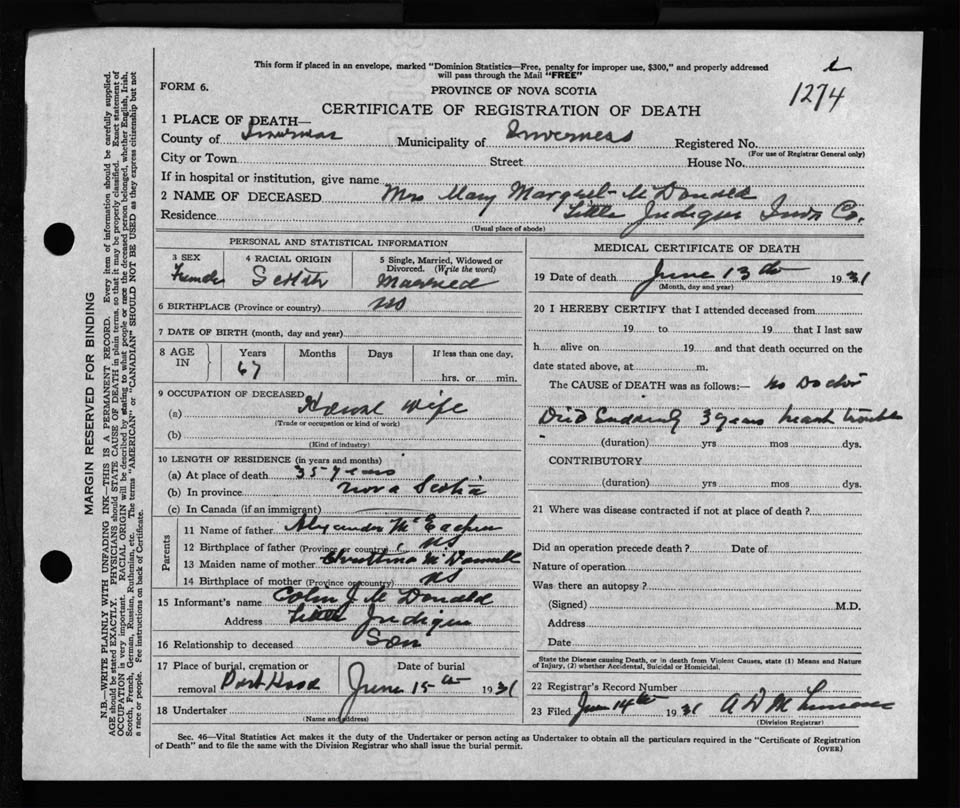 This form if placed in an envelope, marked "Dominion Statistics—Free, penalty for improper use, $300," and properly addressed
will pass through the Mail "FREE"
FORM 6.
PROVINCE OF NOVA SCOTIA
1274
CERTIFICATE OF REGISTRATION OF DEATH
1 PLACE OF DEATH—
County of Inverness Municipality of Inverness Registered No.
(For use of Registrar General only)
City or Town Street House No.
If in hospital or institution, give name
2 NAME OF DECEASED Mrs Mary Margret McDonald
Residence Little Judique Invs Co.
(Usual place of abode)
PERSONAL AND STATISTICAL INFORMATION
3 SEX Female
4 RACIAL ORIGIN Scotch
5 Single, Married, Widowed or Divorced. (Write the word) Married
6 BIRTHPLACE (Province or country) NS
7 DATE OF BIRTH (month, day and year)
8 AGE IN Years Months Days If less than one day,
67 hrs. or min.
9 OCCUPATION OF DECEASED
(a) House wife
(Trade or occupation or kind of work)
(b)
(Kind of industry)
10 LENGTH OF RESIDENCE (in years and months)
(a) At place of death 35 years
(b) In province Nova Scotia
(c) In Canada (if an immigrant)
Parents
11 Name of father Alexander McEachern
12 Birthplace of father (Province or country) NS
13 Maiden name of mother Christina
14 Birthplace of mother (Province or country) NS
15 Informant's name Colin J McDonald
Address Little Judique
16 Relationship to deceased Son
17 Place of burial, cremation or removal Port Hood
Date of burial
June 15th 1931
18 Undertaker
(Name and address)
MEDICAL CERTIFICATE OF DEATH
19 Date of death June 13th 1931
(Month, day and year)
20 I HEREBY CERTIFY that I attended deceased from
19 to 19 that I last saw
h alive on 19 and that death occurred on the
date stated above, at m.
The CAUSE of DEATH was as follows:— No Doctor
Died Suddenly 3 years heart trouble
(duration) yrs mos dys.
CONTRIBUTORY
(duration) yrs mos dys.
21 Where was disease contracted if not at place of death?
Did an operation precede death? Date of
Nature of operation
Was there an autopsy?
(Signed) M.D.
Address
Date
State the Disease causing Death, or in death from Violent Causes, state (1) Means and Nature
of Injury, (2) whether Accidental, Suicidal or Homicidal.
22 Registrar's Record Number
23 Filed June 14th 1931 A D
(Division Registrar)
Sec. 46—Vital Statistics Act makes it the duty of the Undertaker or person acting as Undertaker to obtain all the particulars required in the "Certificate of Registration
of Death" and to file the same with the Division Registrar who shall issue the burial permit.
(OVER)
MARGIN RESERVED FOR BINDING
N.B.—WRITE PLAINLY WITH UNFADING INK—THIS IS A PERMANENT RECORD. Every item of information should be carefully supplied.
AGE should be stated EXACTLY. PHYSICIANS should STATE CAUSE OF DEATH in plain terms, so that it may be properly classified. Exact statement of
OCCUPATION is very important. RACIAL ORIGIN will be described by stating to what people or race the deceased person belonged, whether English, Irish,
Scotch, French, German, Russian, Ruthenian, etc. The terms "AMERICAN" or "CANADIAN" SHOULD NOT BE USED as they express citizenship but not
a race or people. See instructions on back of Certificate.